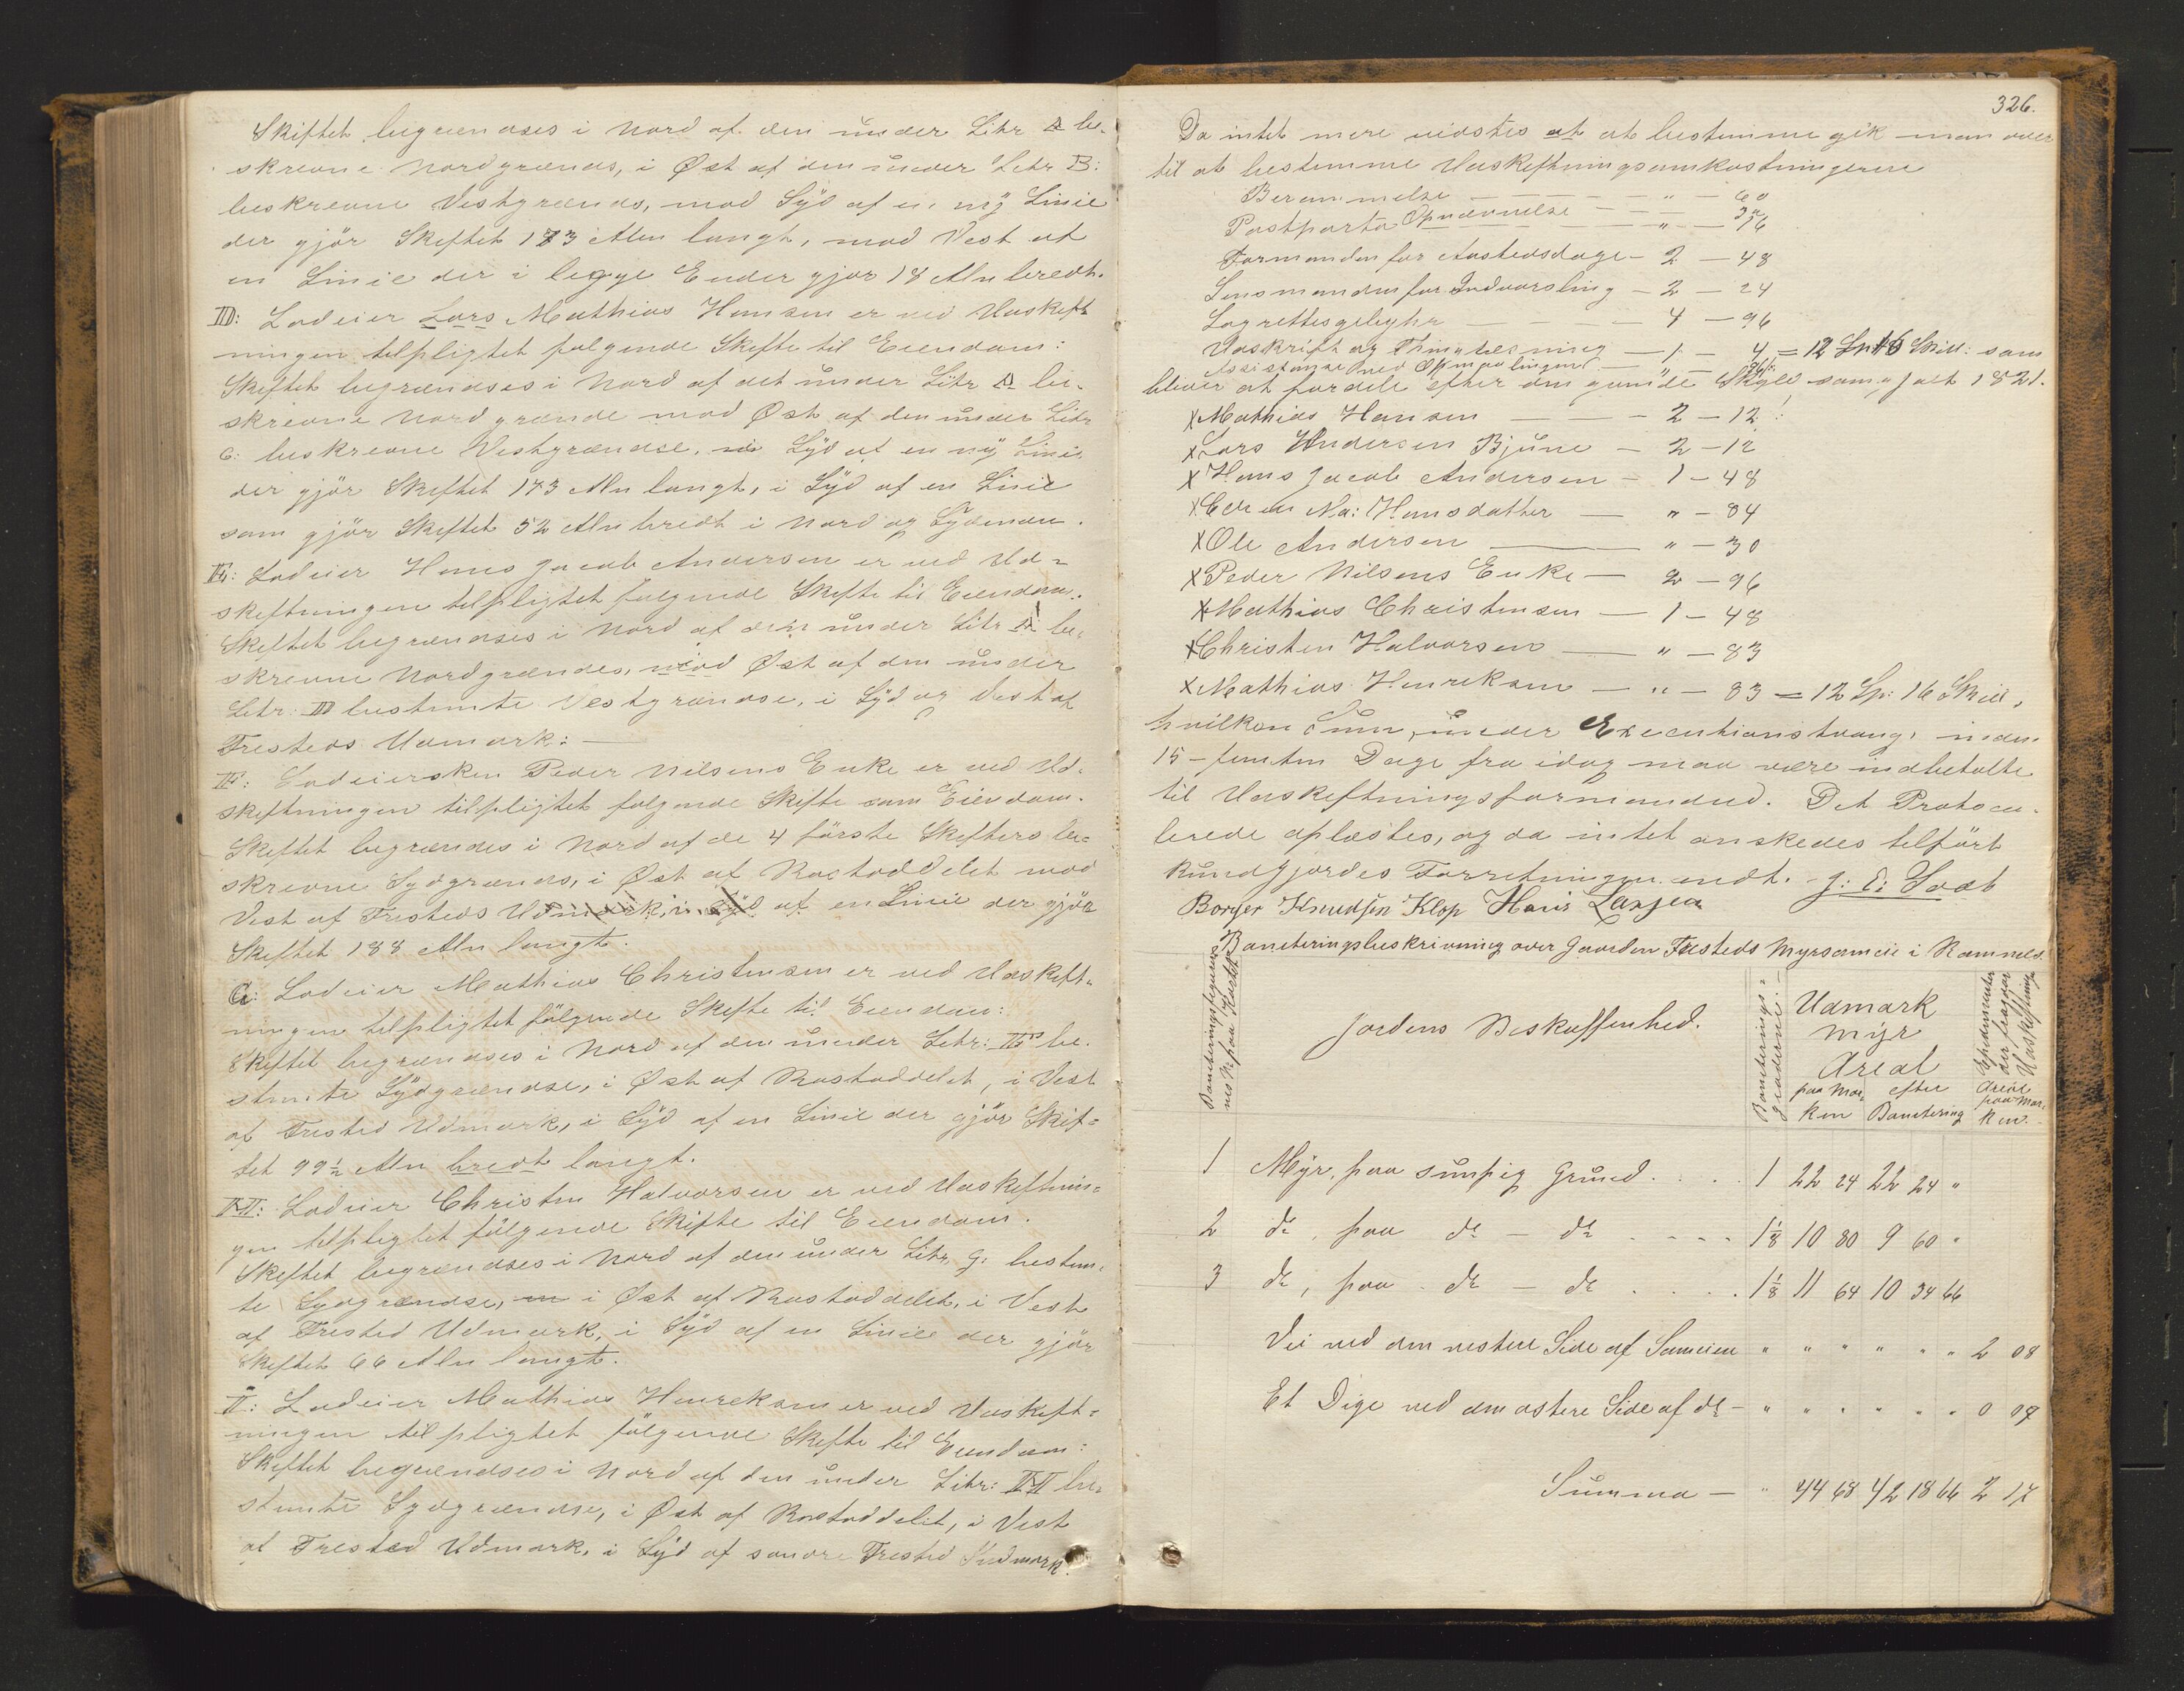 Skiftet begrændses i Nord af den under Litr A be-
skrevne Nordgrænds, i Øst af den under Letr B:
beskrevne Vestgrænds, mod Syd af en ny Linie
der gjör Skiftet 173 Alen langt, mod Vest af
en Linie der i begge Ender gjör 18 Aln bredt.
D: Lodeier Lars Mathias Hansen er ved Udskift
ningen tilpligtet følgende Skifte til Eiendom:
Skiftet begrændses i Nord af det under Litr A be-
skrevne Nordgrændse mod Øst af den under Litr
C: beskrevne Vestgrændse, Syd af en ny Linie
der gjör Skiftet 173 Aln langt, i Syd af en Linie
som gjör Skiftet 52 Aln bredt i Nord og Sydenden.
E: Lodeier Hans Jacob Andersen er ved Ud-
skiftningen tilpligtet følgende Skifte til Eiendom.
Skiftet begrændses i Nord af den under Litr A be-
skrevne Nordgrændse, mod Øst af den under
Litr: D bestemte Vestgrændse, i Syd og Vest af
Fresteds Udmark:
F: Lodeiersken Peder Nilsens Enke er ved Ud-
skiftningen tilpligtet følgende Skifte som Eiendom.
Skiftet begrændes i Nord af de 4 förste Skifters be-
skrevne Sydgrænds, i Øst af Rastaddelet mod
Vest af Fresteds Udmark, i Syd af en Linie der gjör
Skiftet 188 Aln langt.
G: Lodeier Mathias Christensen er ved Udskift-
ningen tilpligtet fölgende Skifte til Eiendom:
Skiftet begrændses i Nord af den under Litr: F be-
stemte Sydgrændse, i Øst af Rastaddelet, i Vest
af Fristed Udmark, i Syd af en Linie der gjör Skif-
tet 99½ Aln bredt langt.
H: Lodeier Christen Halvorsen er ved Udskiftnin-
gen tilpligtet fölgende Skifte til Eiendom.
Skiftet begrændses i Nord af den under Litr. G. bestem-
te Sydgrændse, i Øst af Rastaddelet, i Vest
af Frested Udmark, i Syd af en Linie der gjör
Skiftet 66 Aln langt.
I: Lodeier Mathias Henreksen er ved Udskift-
ningen tilpligtet fölgende Skifte til Eiendom:
Skiftet begrændses i Nord af den under Litr: H be-
stemte Sydgrændse, i Øst af Rastaddelet, i Vest
af Frested Udmark, i Syd af samme Frested Udmark.
326.
Da intet mere vidstes at at bestemme gik man over
til at bestemme Udskiftningsomkostningerne
Berammelse — " — 60
Postporto Opnævnelse — " — 36
Formanden for Aastedsdage — 2 — 48
Lensmanden for Indvarsling — 2 — 24
Lagrettesgebyhr — 4 — 96
Udskrift og Thinglæsning — 1 — 4 = 12 Sp 16 Skill: som
Assistanse ved Opmaalingen
bliver at fordele efter den gamle Skyld samt Jært 1821.
x Mathias Hansen — 2 — 12
x Lars Andersen Bjune — 2 — 12
x Hans Jacob Andersen — 1 — 48
x Edren Ma: Hansdatter — " — 84
x Ole Andersen — " — 30
x Peder Nilsens Enke — 2 — 96
x Mathias Christensen — 1 — 48
x Christen Halvorsen — " — 83
x Mathias Henreksen — " — 83 = 12 Sp: 16 Skill,
hvilken Sum, under Executionstvang, inden
15 – femten Dage fra idag maa være indbetalte
til Udskiftningsformanden. Det Protocol-
lerede oplæstes, og da intet ønskedes tilfört
kundgjordes Forretningen endt. J: E: Lodt
Borger Knudsen Klop Hans Laxjea
Boneteringsbeskrivning over Gaarden Fresteds Myrsameie i Ramnæs.
Boneteringsfigurer
nes No paa Kartet
Jordens Beskaffenhed.
Boneterings-
graderne:
Udmark
Myr
Areal
paa Mar- efter
ken Bonetering
der fragaar
Udskiftning
Areal
paa Mar-
ken.
1 Myr, paa sumpig Grund. . . . 1 22 24 22 24 "
2 do, paa do — do . . . . 1⅛ 10 80 9 60 "
3 do, paa do — do . . . . 1⅛ 11 64 10 34 66
Vei ved den vestere Side af Sameien " " " " " " 2 08
Et Dige ved den østere Side af do — " " " " " " 0 09
Summa — " 44 68 42 18 66 2 17